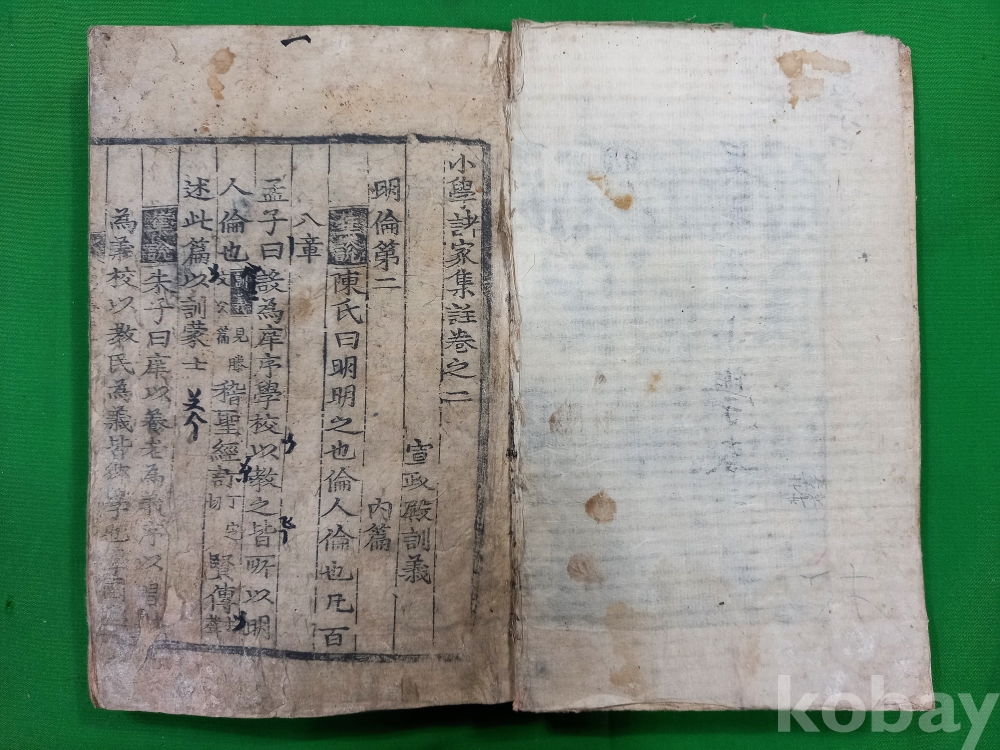 一
小學諸家集註卷之二
宣政殿訓義
明倫第二 內篇
集說 陳氏曰明明之也倫人倫也凡百
八章
孟子曰設為庠序學校以教之皆所以明
人倫也 訓義 見滕文公篇 稽聖經訂 丁定切 賢傳
述此篇以訓蒙士
集說 朱子曰庠以養老為義序以習射
為義校以教民為義皆鄉學也學國
kobay